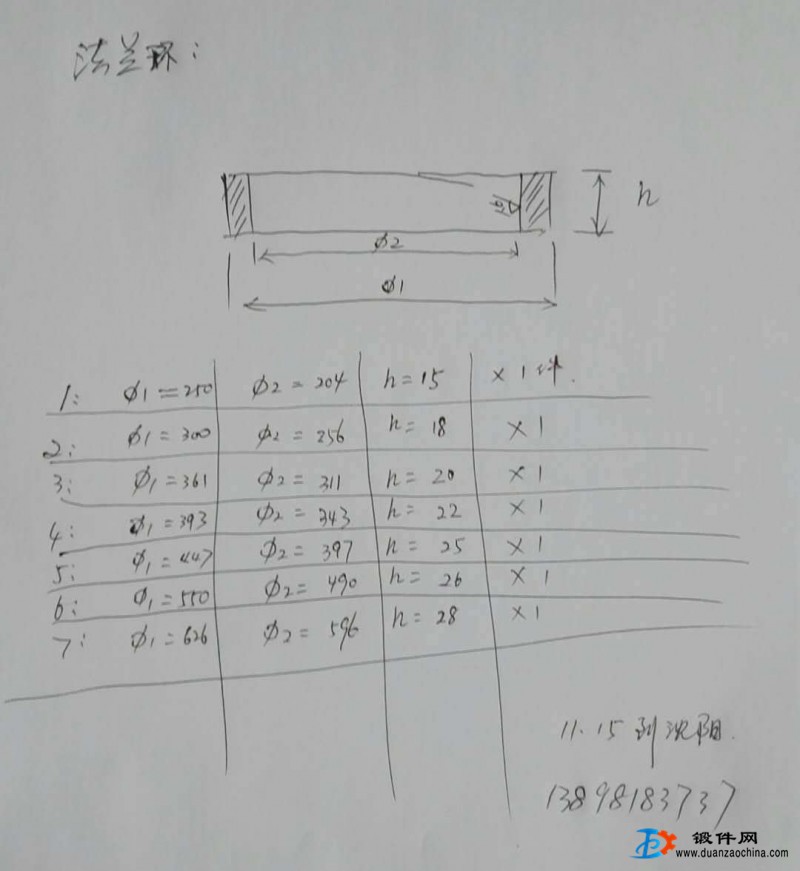 法兰环:
h
φ2
φ1
1: φ1=250 φ2=204 h=15 ×1件.
2: φ1=300 φ2=256 h=18 ×1
3: φ1=361 φ2=311 h=20 ×1
4: φ1=393 φ2=343 h=22 ×1
5: φ1=447 φ2=397 h=25 ×1
6: φ1=550 φ2=490 h=26 ×1
7: φ1=626 φ2=596 h=28 ×1
11.15到沈阳.
13898183737
锻件网
www.duanzaochina.com